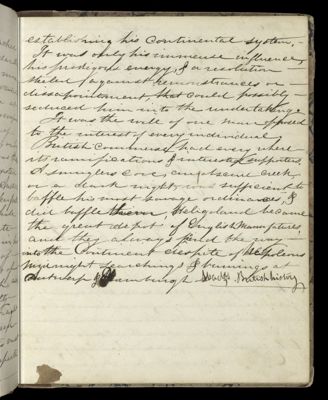 establishing his Continental system,
It was only his immense influence,
his prodigious energy, & a resolution
steeled against remonstrances or
dissappointment, that could possibly
seduced him into the undertaking
It was the will of one man opposed
to the interest of every individual
British Commerce had every where
its ramifications & interested supporters,
A smugglers cove, an obscure creek,
or a dark night, was sufficient to
baffle his most savage ordinances, &
did baffle them, Heligoland became
the great depot of English Manufactures,
and they always found the way
into the Continent despite of Napoleons
midnight searchings & burnings at
Antwerp & Hamburgh British history